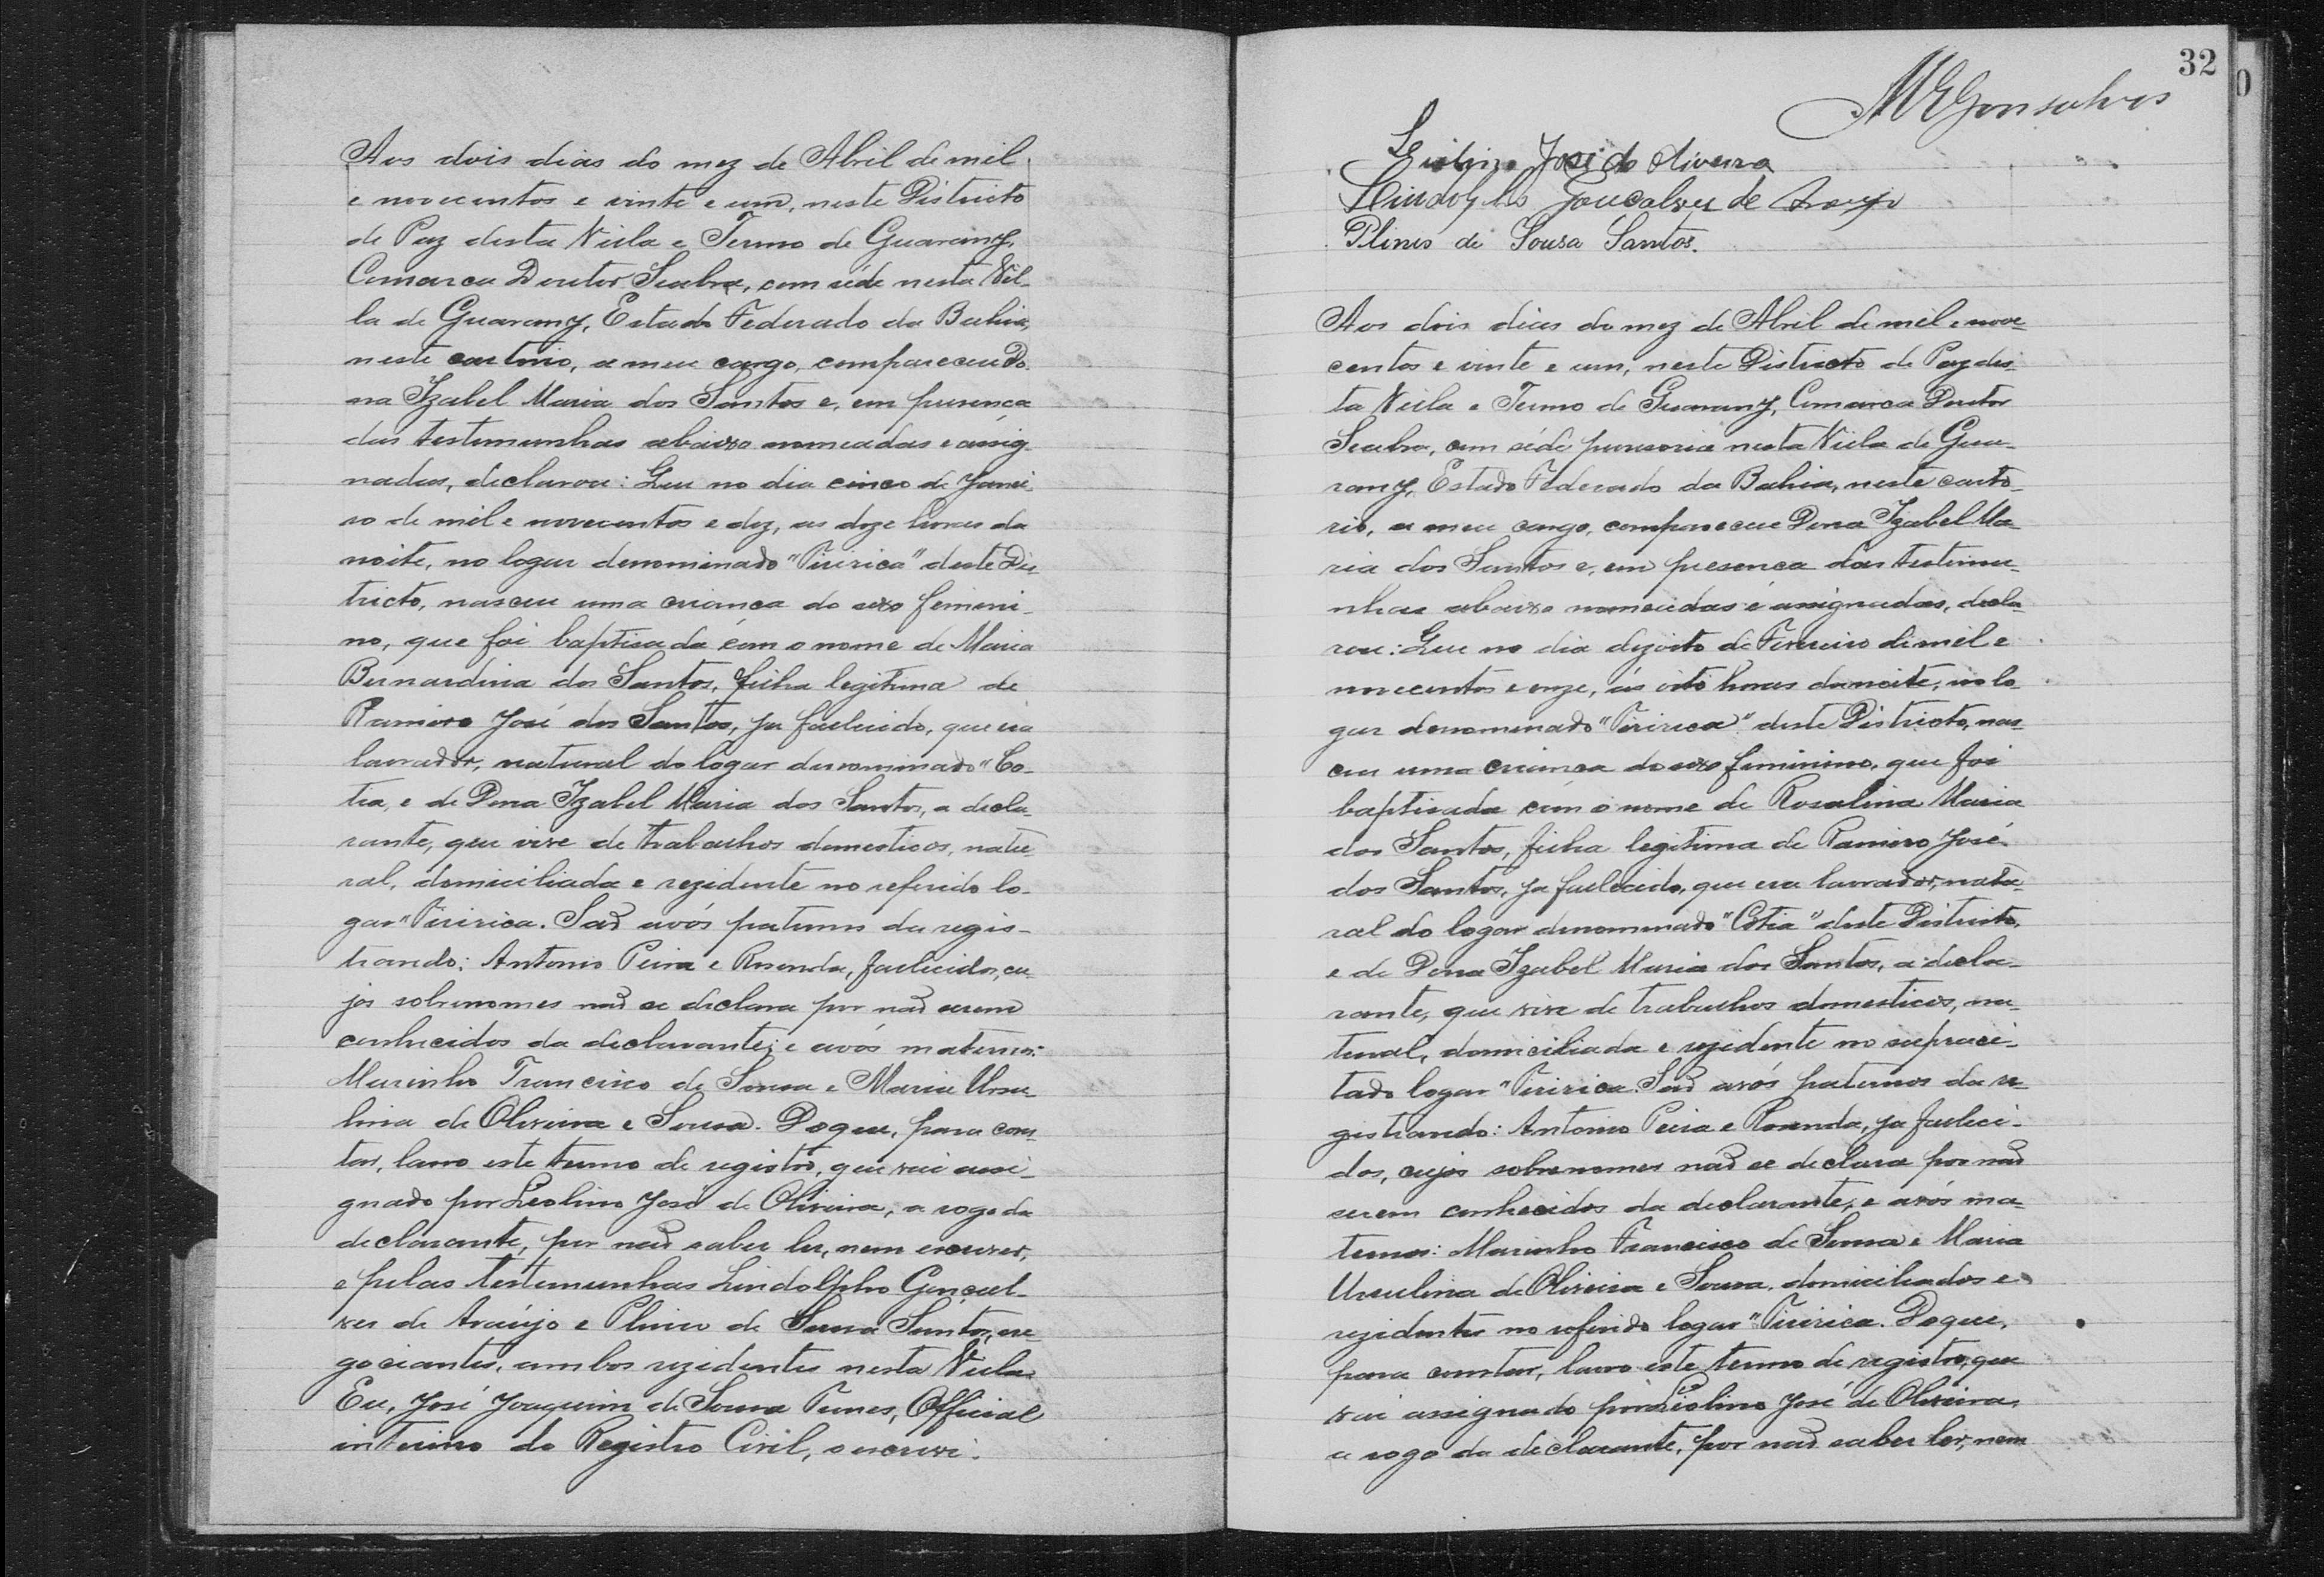 Aos dois dias do mez de Abril de mil
e novecentos e vinte e um, neste Districto
de Paz desta Villa e Termo de Guarany,
Comarca Doutor Seabra, com séde nesta Vil-
la de Guarany, Estado Federado da Bahia,
neste cartorio, a meu cargo, compareceu Do-
na Izabel Maria dos Santos e, em presença
das testemunhas abaixo nomeadas e assig-
nadas, declarou: Que no dia cinco de Janei-
ro de mil e novecentos e dez, as doze horas da
noite, no logar denominado "Tiririca" deste Dis-
tricto, nasceu uma criança do sexo femini-
no, que foi baptisada com o nome de Maria
Bernardina dos Santos, filha legitima de
Ramiro José dos Santos, ja fallecido, que era
lavrador, natural do logar denominado "Co-
tia, e de Dona Izabel Maria dos Santos, a decla-
rante, que vive de trabalhos domesticos, natu-
ral, domiciliada e rezidente no referido lo-
gar "Tiririca. Saõ avós paternos da regis-
trando: Antonio e Rosenda, fallecidos, cu-
jos sobrenomes naõ se declara por naõ serem
conhecidos da declarante; e avós maternos:
Marinho Francisco de Sousa e Maria Ursu-
lina de Oliveira e Sousa. Do que, para cons-
tar, lavro este termo de registro, que vai assi-
gnado por Leolino José de Oliveira, a rogo da
declarante, por naõ saber ler, nem escrever,
e pelas testemunhas Lindolpho Gonçal-
ves de Araújo e Plinio de Sousa Santos, ne-
gociantes, ambos rezidentes nesta Villa.
Eu, José Joaquim de Sousa Tunes, Official
interino do Registro Civil, o escrevi.
32
MEGonsalves
Leolino José de Oliveira
Lindolpho Goncalves de Araujo
Plinio de Sousa Santos.
Aos dois dias do mez de Abril de mil e nove-
centos e vinte e um, neste Districto de Paz des-
ta Villa e Termo de Guarany, Comarca Doutor
Seabra, com séde provisoria nesta Villa de Gua-
rany, Estado Federado da Bahia, neste carto-
rio, a meu cargo, compareceu Dona Izabel Ma-
ria dos Santos e, em presença das testemu-
nhas abaixo nomeadas e assignadas, decla-
rou: Que no dia dezoito de Fevereiro de mil e
novecentos e onze, ás oito horas da noite, no lo-
gar denominado "Tiririca" deste Districto, nas-
ceu uma criança do sexo feminino, que foi
baptisada com o nome de Rosalina Maria
dos Santos, filha legitima de Ramiro José
dos Santos, ja fallecido, que era lavrador, natu-
ral do logar denominado "Cotia" deste Districto,
e de Dona Izabel Maria dos Santos, a decla-
rante, que vive de trabalhos domesticos, na-
tural, domiciliada e rezidente no supraci-
tado logar "Tiririca. Saõ avós paternos da re-
gistrando: Antonio e Rosenda, ja falleci-
dos, cujos sobrenomes naõ se declara por naõ
serem conhecidos da declarante; e avós ma-
ternos: Marinho Francisco de Sousa e Maria
Ursulina de Oliveira e Sousa, domiciliados e
rezidentes no referido logar "Tiririca. Do que,
para constar, lavro este termo de registro, que
vai assignado por Leolino José de Oliveira,
a rogo da declarante, por naõ saber ler, nem